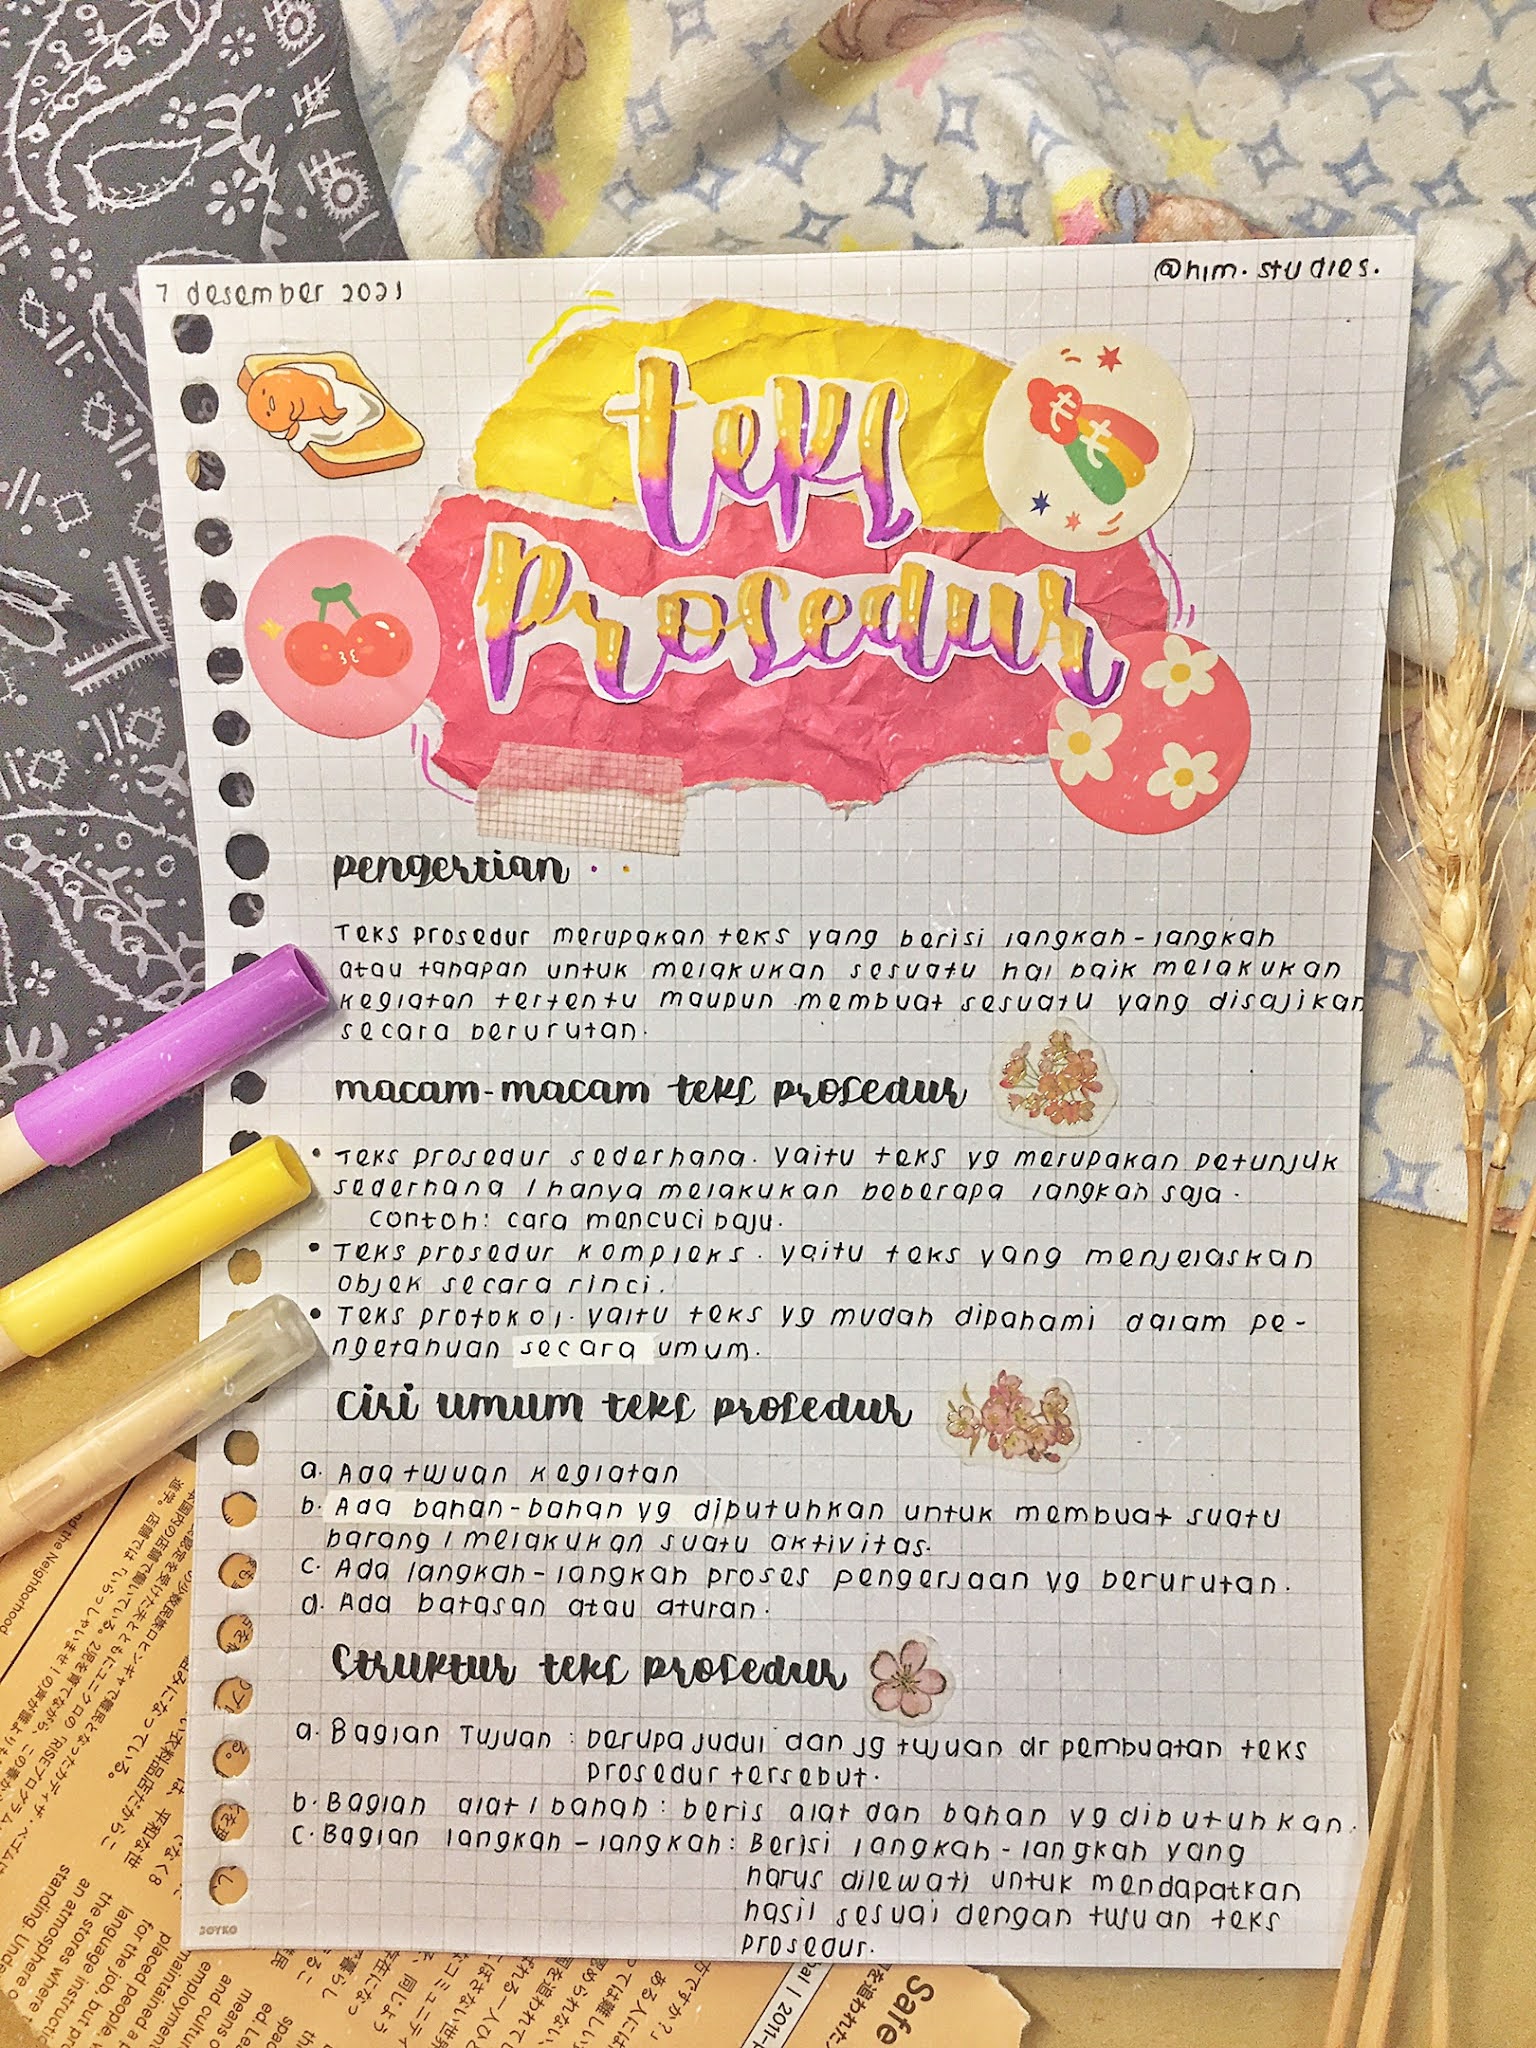 7 desember 2021
@nim.studies.
teks
prosedur
pengertian
Teks prosedur merupakan teks yang berisi langkah-langkah
atau tahapan untuk melakukan sesuatu hal baik melakukan
kegiatan tertentu maupun membuat sesuatu yang disajikan
secara berurutan.
macam-macam teks prosedur
• Teks prosedur sederhana. yaitu teks yg merupakan petunjuk
sederhana / hanya melakukan beberapa langkah saja.
contoh: cara mencuci baju.
• Teks prosedur kompleks. yaitu teks yang menjelaskan
objek secara rinci.
• Teks protokol. yaitu teks yg mudah dipahami dalam pe-
ngetahuan secara umum.
ciri umum teks prosedur
a. Ada tujuan kegiatan
b. Ada bahan-bahan yg diputuhkan untuk membuat suatu
barang / melakukan suatu aktivitas.
c. Ada langkah-langkah proses pengerjaan yg berurutan.
d. Ada batasan atau aturan.
struktur teks prosedur
a. Bagian Tujuan : berupa judul dan jg tujuan dr pembuatan teks
prosedur tersebut.
b. Bagian alat / bahan : beris alat dan bahan yg dibutuhkan.
c. Bagian langkah-langkah: Berisi langkah-langkah yang
harus dilewati untuk mendapatkan
hasil sesuai dengan tujuan teks
prosedur.
JOYKO
and the Neighborhood
standing. Under
an atmosphere
the stores where
language instruc
for the job, but
placed people,
maintained a
employment
and cultur
means
Safe